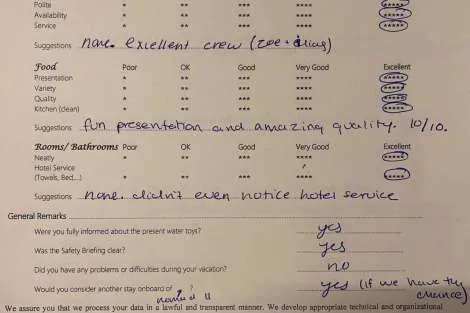 Polite * ** *** **** *****
Availability * ** *** **** *****
Service * ** *** **** *****
Suggestions none. excellent crew (zoe + elias)
Food Poor OK Good Very Good Excellent
Presentation * ** *** **** *****
Variety * ** *** **** *****
Quality * ** *** **** *****
Kitchen (clean) * ** *** **** *****
Suggestions fun presentation and amazing quality. 10/10.
Rooms/ Bathrooms Poor OK Good Very Good Excellent
Neatly * ** *** **** *****
Hotel Service
(Towels, Bed....) * ** *** **** *****
Suggestions none. didn't even notice hotel service
General Remarks
Were you fully informed about the present water toys? yes
Was the Safety Briefing clear? yes
Did you have any problems or difficulties during your vacation? no
Would you consider another stay onboard of ? yes (if we have the
chance)
We assure you that we process your data in a lawful and transparent manner. We develop appropriate technical and organizational